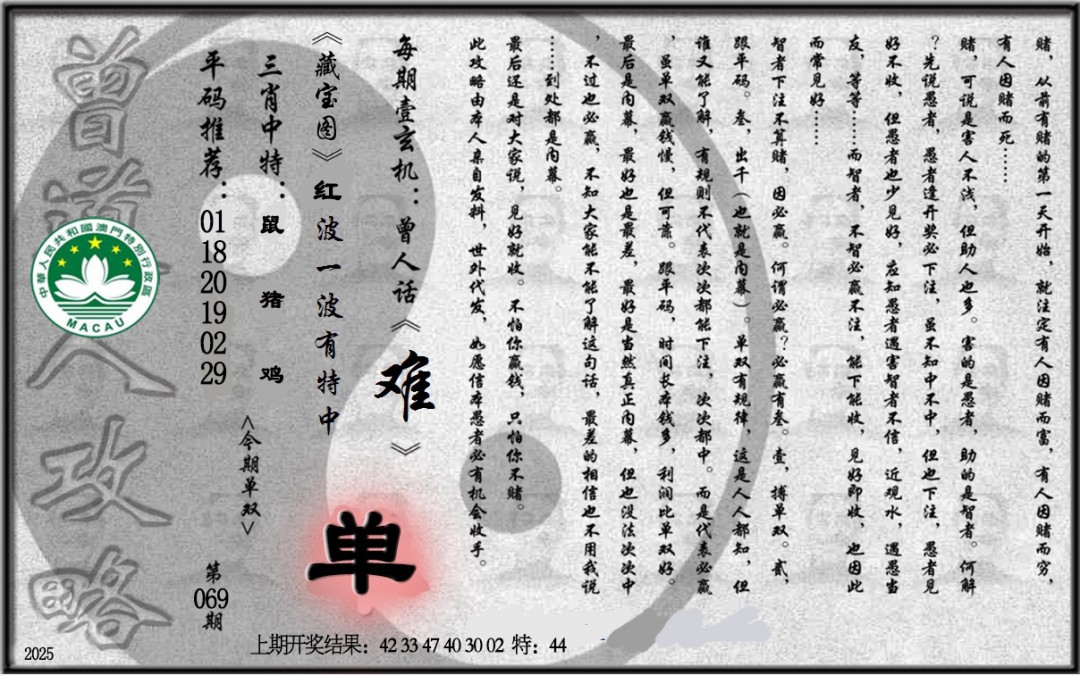 赌，从前有赌的第一天开始，就注定有人因赌而富，有人因赌而穷，
有人因赌而死……
赌，可说是害人不浅，但助人也多。害的是愚者，助的是智者。何解
？先说愚者，愚者逢开奖必下注，虽不知中不中，但也下注，愚者见
好不收，但愚者也少见好，应知愚者遇害智者不信，近观水，遇愚当
友，等等……而智者，不智必赢不注，能下能收，见好即收，也因此
而常见好……
智者下注不算赌，因必赢。何谓必赢？必赢有叁。壹，搏单双。贰，
跟平码。叁，出千（也就是内幕）。单双有规律，这是人人都知，但
谁又能了解，有规则不代表次次都能下注，次次都中。而是代表必赢
，虽单双赢钱慢，但可靠。跟平码，时间长本钱多，利润比单双好。
最后是内幕，最好也是最差，最好是当然真正内幕，但也没法次次中
，不过也必赢，不知大家能不能了解这句话，最差的相信也不用我说
……到处都是内幕。
最后还是对大家说，见好就收。不怕你赢钱，只怕你不赌。
此攻略由本人亲自发料，世外代发，如愿信本愚者必有机会收手。
每期壹玄机：曾人话《难》
《藏宝图》红波一波有特中
三肖中特：鼠 猪 鸡
平码推荐：01 18 20 19 02 29
<今期单双>
单
第069期
曾道人攻略
中華人民共和國澳門特別行政區
MACAU
上期开奖结果：42 33 47 40 30 02 特：44
2025